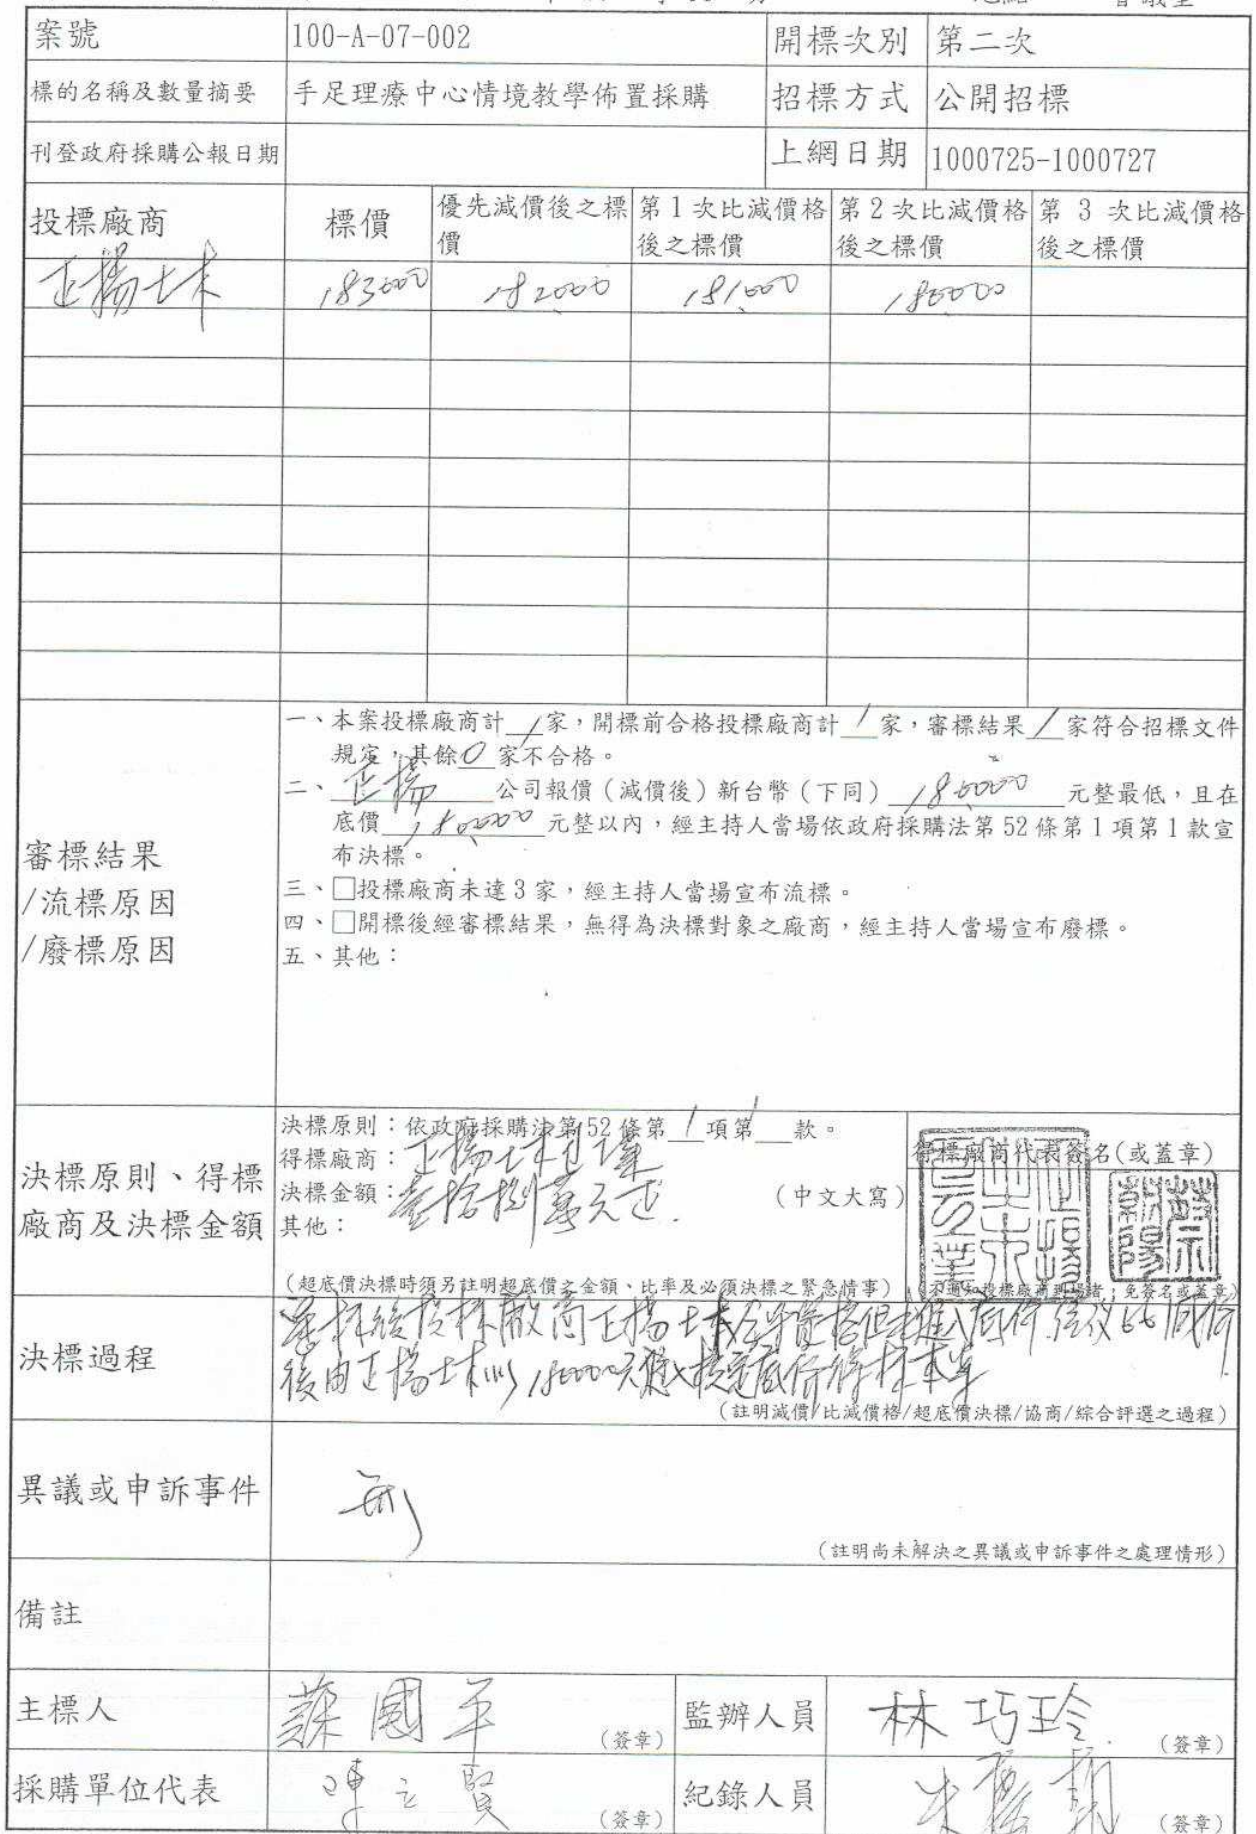 案號 100-A-07-002 開標次別 第二次
標的名稱及數量摘要 手足理療中心情境教學佈置採購 招標方式 公開招標
刊登政府採購公報日期 上網日期 1000725-1000727
投標廠商 標價 優先減價後之標價 第1次比減價格後之標價 第2次比減價格後之標價 第 3 次比減價格後之標價
正揚土木 183000 182000 181000 180000
審標結果
/流標原因
/廢標原因
一、本案投標廠商計1家，開標前合格投標廠商計1家，審標結果1家符合招標文件
規定，其餘0家不合格。
二、正揚公司報價(減價後)新台幣(下同)180000元整最低，且在
底價180000元整以內，經主持人當場依政府採購法第52條第1項第1款宣
布決標。
三、□投標廠商未達3家，經主持人當場宣布流標。
四、□開標後經審標結果，無得為決標對象之廠商，經主持人當場宣布廢標。
五、其他：
決標原則、得標
廠商及決標金額
決標原則：依政府採購法第52條第1項第1款。
得標廠商：正揚土木包工業
決標金額：壹拾捌萬元正. (中文大寫)
其他：
(超底價決標時須另註明超底價之金額、比率及必須決標之緊急情事)
得標廠商代表簽名(或蓋章)
正揚土木包工業
蔡宗朝陽
(不通知投標廠商到場者，免簽名或蓋章)
決標過程
後由正揚土木以180000元進入核定底價得標本案
(註明減價/比減價格/超底價決標/協商/綜合評選之過程)
異議或申訴事件 無
(註明尚未解決之異議或申訴事件之處理情形)
備註
主標人 蘇國平 (簽章) 監辦人員 林巧玲 (簽章)
採購單位代表 陳立賢 (簽章) 紀錄人員 (簽章)